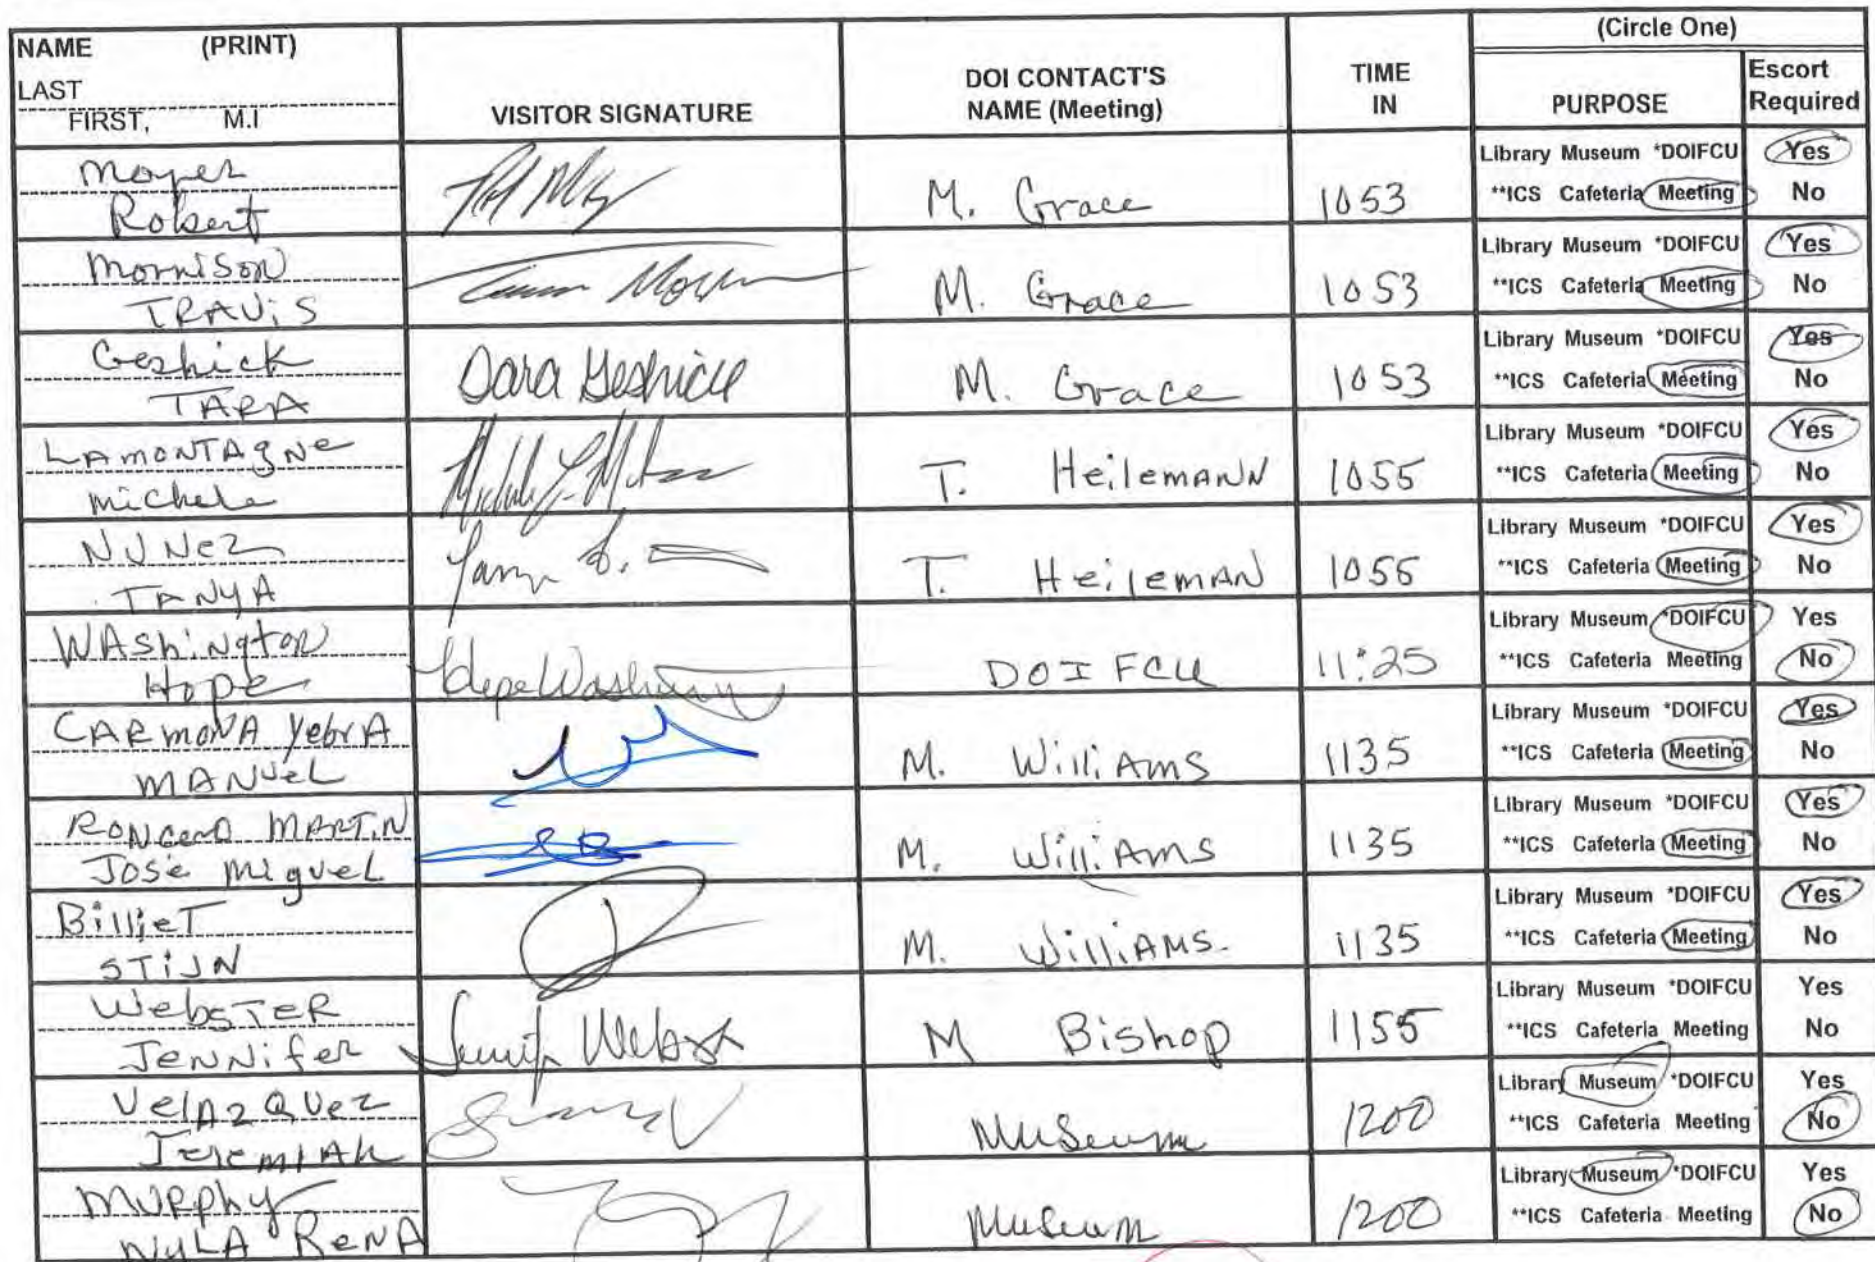 (Circle One)
NAME (PRINT)
LAST
FIRST, M.I
VISITOR SIGNATURE
DOI CONTACT'S
NAME (Meeting)
TIME
IN
PURPOSE
Escort
Required
Moyer
Robert
M. Grace
1053
Library Museum *DOIFCU
**ICS Cafeteria Meeting
Yes
No
Morrison
TRAViS
M. Grace
1053
Library Museum *DOIFCU
**ICS Cafeteria Meeting
Yes
No
Geshick
TARA
Dara Geshick
M. Grace
1053
Library Museum *DOIFCU
**ICS Cafeteria Meeting
Yes
No
LAmonTAgNe
michele
T. HeilemANN
1055
Library Museum *DOIFCU
**ICS Cafeteria Meeting
Yes
No
NUNez
TANYA
T. HeilemAN
1055
Library Museum *DOIFCU
**ICS Cafeteria Meeting
Yes
No
WAshiNgton
Hope
Hope Washington
DOI FCU
11:25
Library Museum *DOIFCU
**ICS Cafeteria Meeting
Yes
No
CARmoNA YebrA
MANUeL
M. WilliAms
1135
Library Museum *DOIFCU
**ICS Cafeteria Meeting
Yes
No
MARTiN
José MigueL
M. WilliAms
1135
Library Museum *DOIFCU
**ICS Cafeteria Meeting
Yes
No
BillieT
STiJN
M. WilliAMS.
1135
Library Museum *DOIFCU
**ICS Cafeteria Meeting
Yes
No
WebsTeR
JeNNifer
Jennifer Webster
M Bishop
1155
Library Museum *DOIFCU
**ICS Cafeteria Meeting
Yes
No
VelAzQUez
JeremiAh
Museum
1200
Library Museum *DOIFCU
**ICS Cafeteria Meeting
Yes
No
MURphy
NyLA ReNA
Museum
1200
Library Museum *DOIFCU
**ICS Cafeteria Meeting
Yes
No